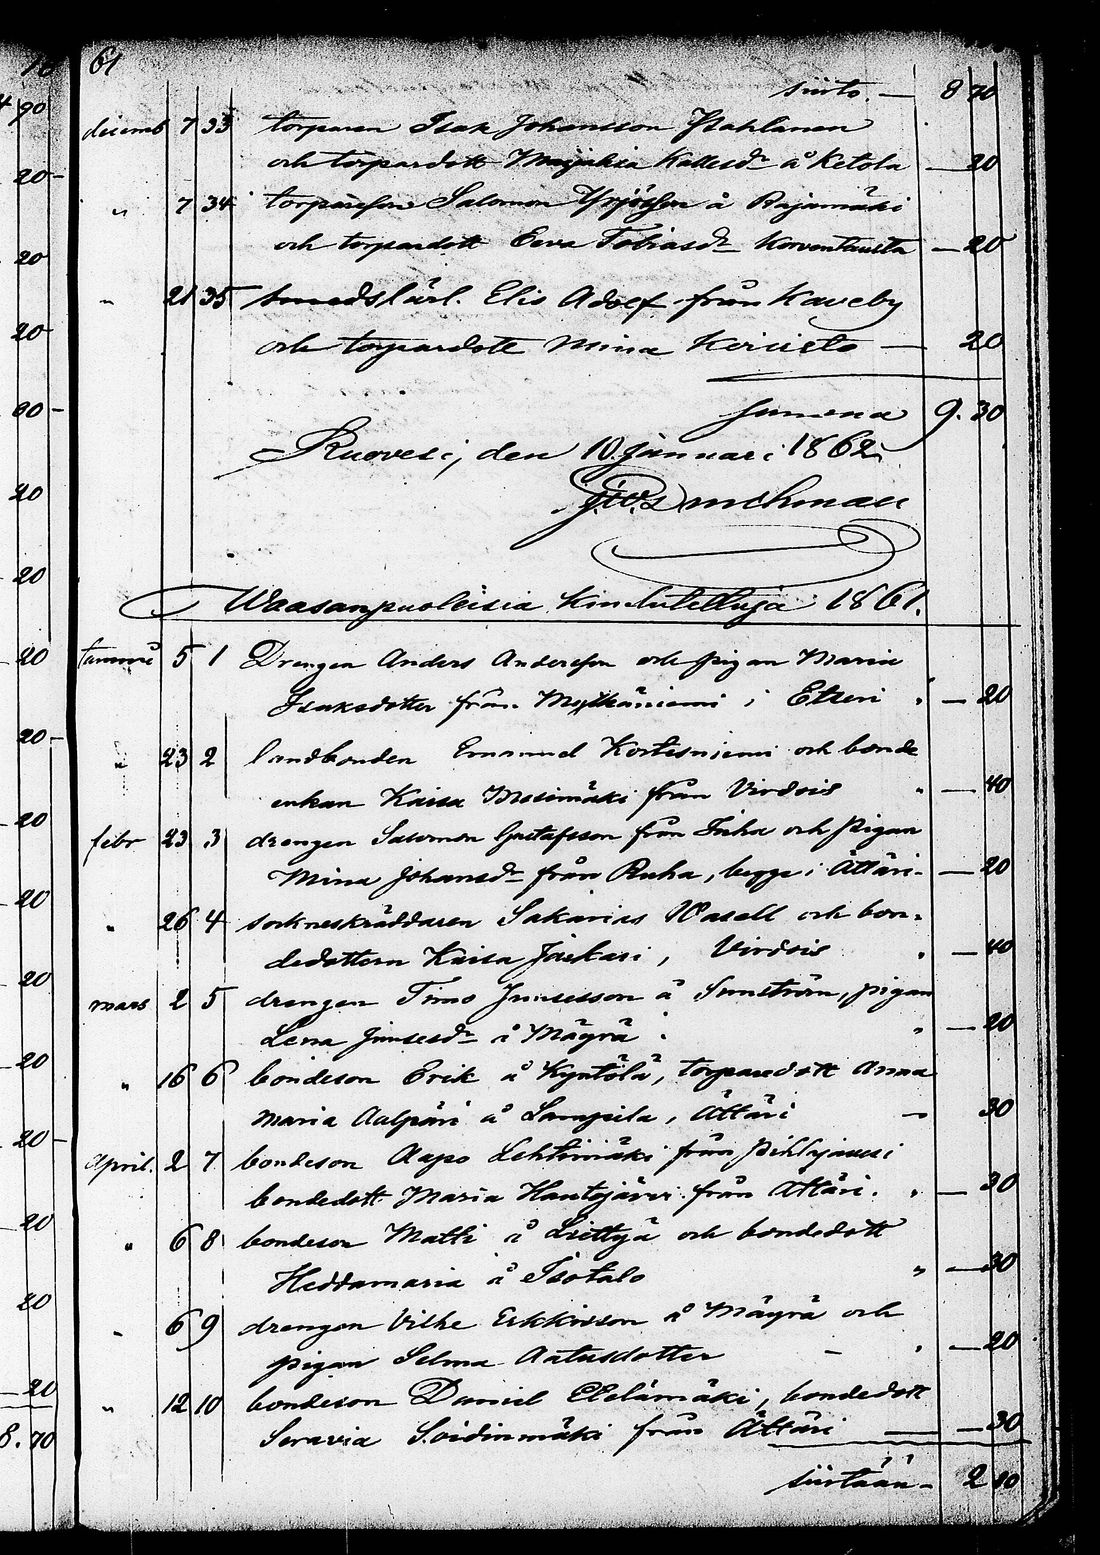 61
siirto. — 8 70
decemb 7 33 torparen Isak Johansson Pohlanen
och torpardott Majukia Kallesdr å Ketola — 20
" 7 34 torpareson Salomon Yrjösson å Rajamäki
och torpardott Eeva Tobiasdr Korventausta — 20
" 21 35 smedslärl. Elis Adolf från Kaveby
och torpardott Mina Koivisto — 20
Summa 9. 30
Ruovesi, den 10 januari 1862
Waasanpuoleisia kirkutettuja 1861.
tammi 5 1 Drengen Anders Andersson och pigan Maria
Isaksdotter från Myllyniemi i Etseri " — 20
" 23 2 landbonden Emanuel Kortesniemi och bonde
enkan Kaisa Mesimäki från Virdois " — 40
febr 23 3 drengen Salomon Gustafsson från Inha och pigan
Mina Johansdr från Ruha, begge i Ättäri — 20
" 26 4 sockneskräddaren Sakarias Wasell och bon-
dedottern Kaisa Jäskari, Virdois " — 40
mars 2 5 drengen Timo Junsesson å Sunström, pigan
Lena Junsesdr å Mäyrä " — 20
" 16 6 bondeson Erik å Kyntölä, torparedott Anna
Maria Aalpäri å Lampila, Ättäri — 30
April. 2 7 bondeson Aapo Lehtimäki från Pihlajavesi
bondedott Maria Hautajärvi från Ättäri. " — 30
" 6 8 bondeson Matti å Liettyä och bondedott
Heddamaria å Isotalo " — 30
" 6 9 drengen Vilhe Erkkisson å Mäyrä och
pigan Selma Aatusdotter — " — 20
" 12 10 bondeson Daniel Eteläimäki, bondedott
Seravia Soidinmäki från Ättäri — 30
siirtään — 2 80